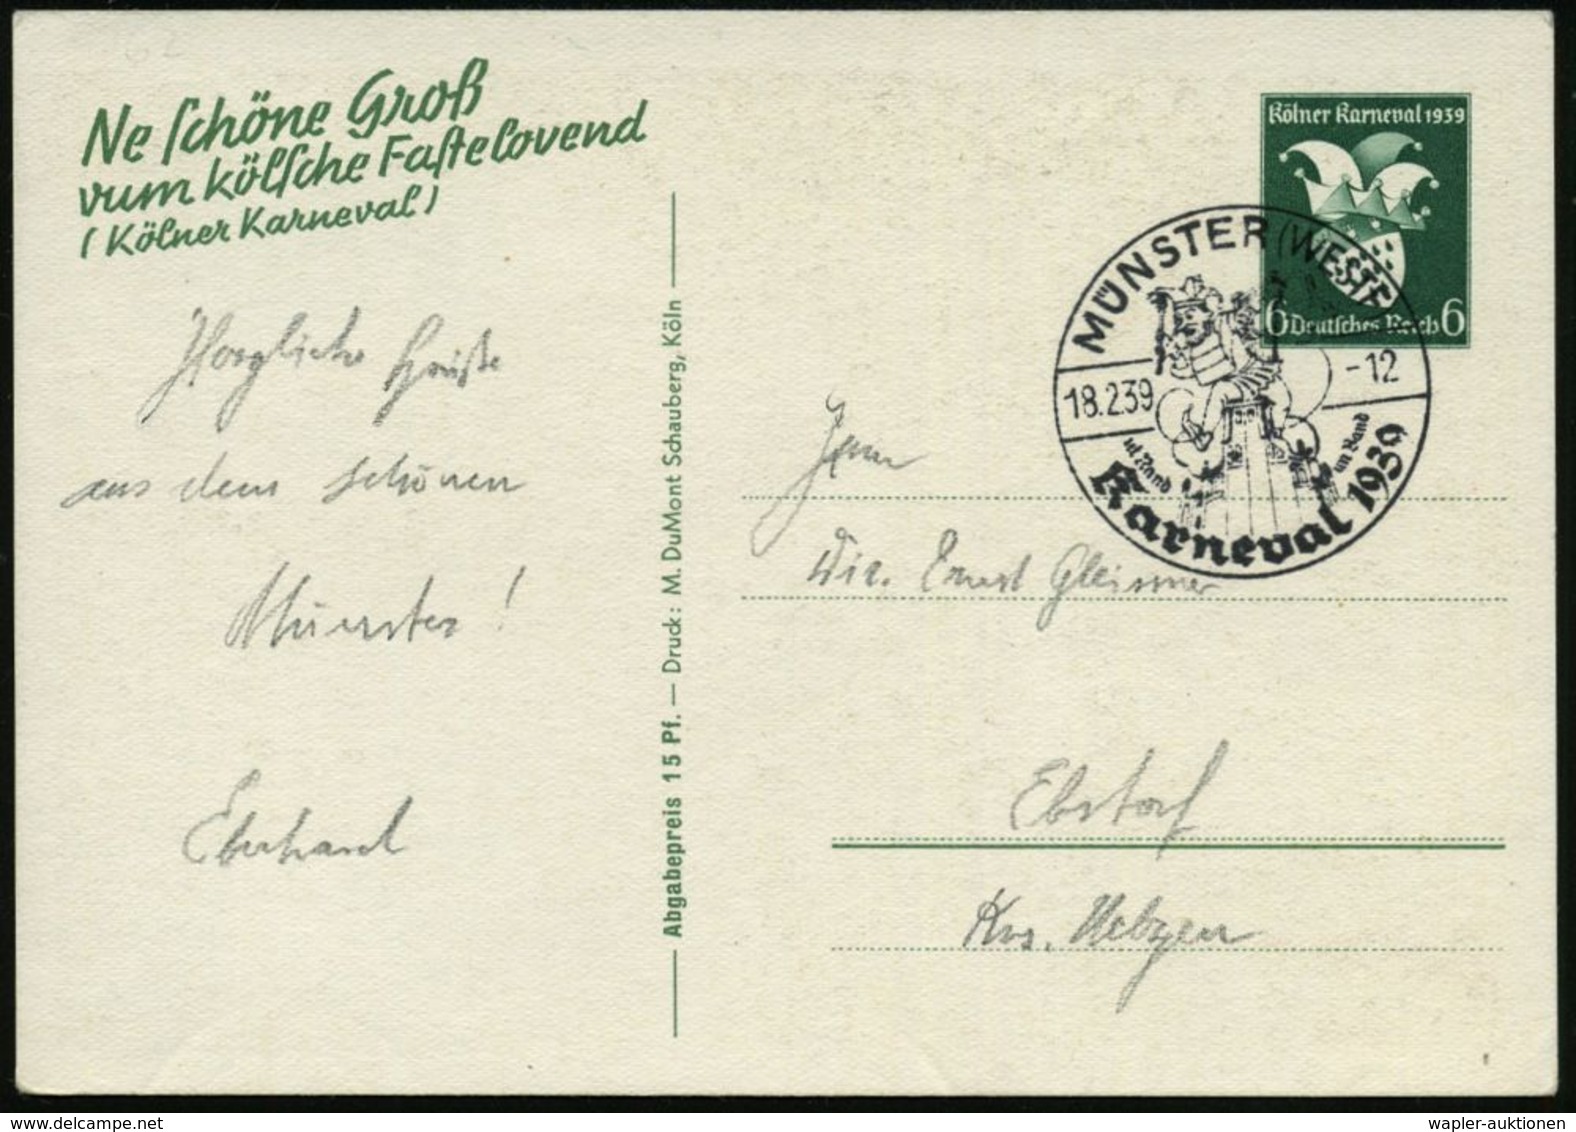 Ne schöne Groß
vum kölsche Fastelovend
(Kölner Karneval)
Herzliche Grüße
aus dem schönen
Münster!
Eberhard
Abgabepreis 15 Pf. — Druck: M. DuMont Schauberg, Köln
Kölner Karneval 1939
6 Deutsches Reich 6
MÜNSTER (WESTF)
18.2.39 -12
Rand Rand
Karneval 1939
Herrn
Dir. Ernst Gleissner
Ebstorf
Krs. Uelzen
wapler-auktionen